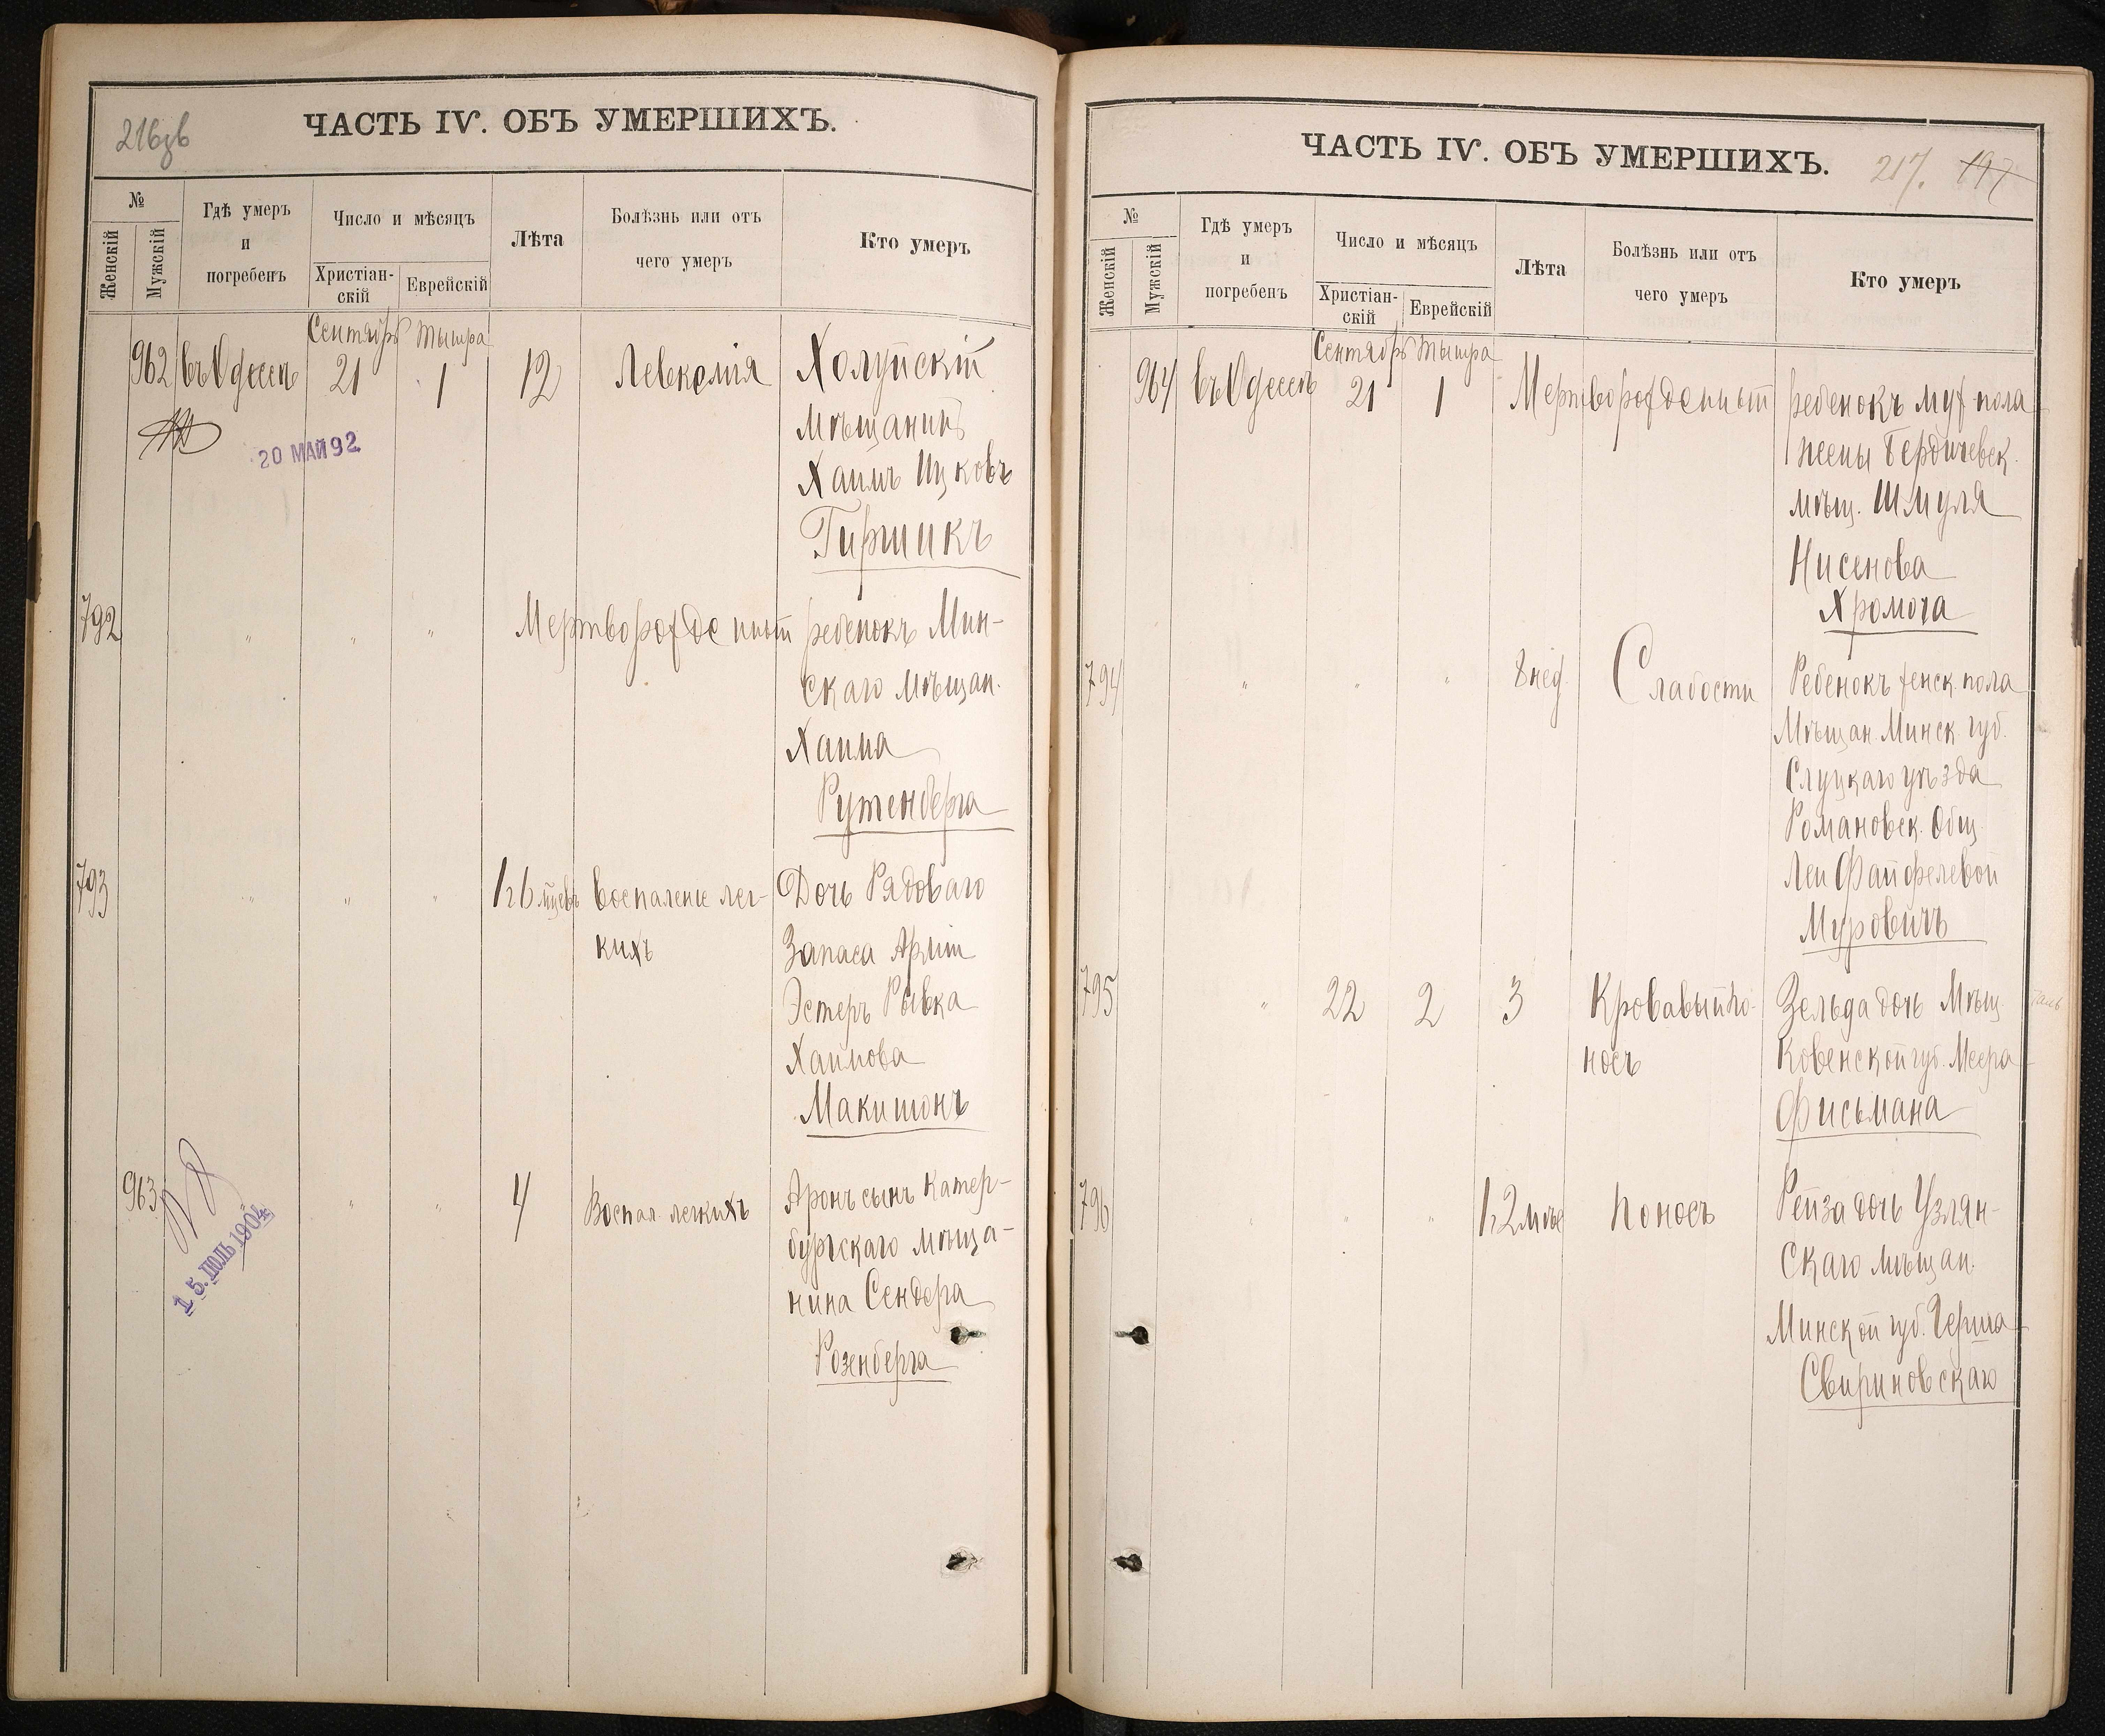 216зв
ЧАСТЬ IV. ОБЪ УМЕРШИХЪ.
№
Женскій
Мужскій
Гдѣ умеръ
и
погребенъ
Число и мѣсяцъ
Христіан-
скій
Еврейскій
Лѣта
Болѣзнь или отъ
чего умеръ
Кто умеръ
Сентябрь Тышра
962 въ Одессѣ 21 1 12 Левкемія Холуйскій
мѣщанинъ
20 МАЙ 92
Хаимъ Ицковъ
Гиршикъ
792 " " " Мертворожденный ребенокъ Мин-
скаго мѣщан.
Хаима
Рутенберга
793 " " " 1 6 мцевъ Воспаленіе лег-
кихъ
Дочь Рядоваго
Запаса Арміи
Эстеръ Рывка
Хаимова
Макишонъ
963 " " 4 Воспал. легкихъ
Аронъ сынъ Катер-
бургскаго мѣща-
нина Сендера
Розенберга
15. ІЮЛЬ 1904
ЧАСТЬ IV. ОБЪ УМЕРШИХЪ.
217. 197
№
Женскій
Мужскій
Гдѣ умеръ
и
погребенъ
Число и мѣсяцъ
Христіан-
скій
Еврейскій
Лѣта
Болѣзнь или отъ
чего умеръ
Кто умеръ
Сентябрь Тышра
964 въ Одессѣ 21 1 Мертворожденный ребенокъ муж пола
Бердичевск.
мѣщ. Шмуля
Нисенова
Хромога
794 " " " 8 нед. Слабости Ребенокъ женск. пола
Мѣщан. Минск. губ.
Слуцкаго уѣзда
Романовск. Общ.
Леи Файфелевой
Муровичъ
795 " 22 2 3 Кровавый по-
носъ
Зельда дочь Мѣщ.
Ковенской губ. Меера
Фисьмана
796 " " " 1 2 мѣс Поносъ Рейза дочь Узлян-
скаго мѣщан.
Минской губ. Герша
Свириновскаго